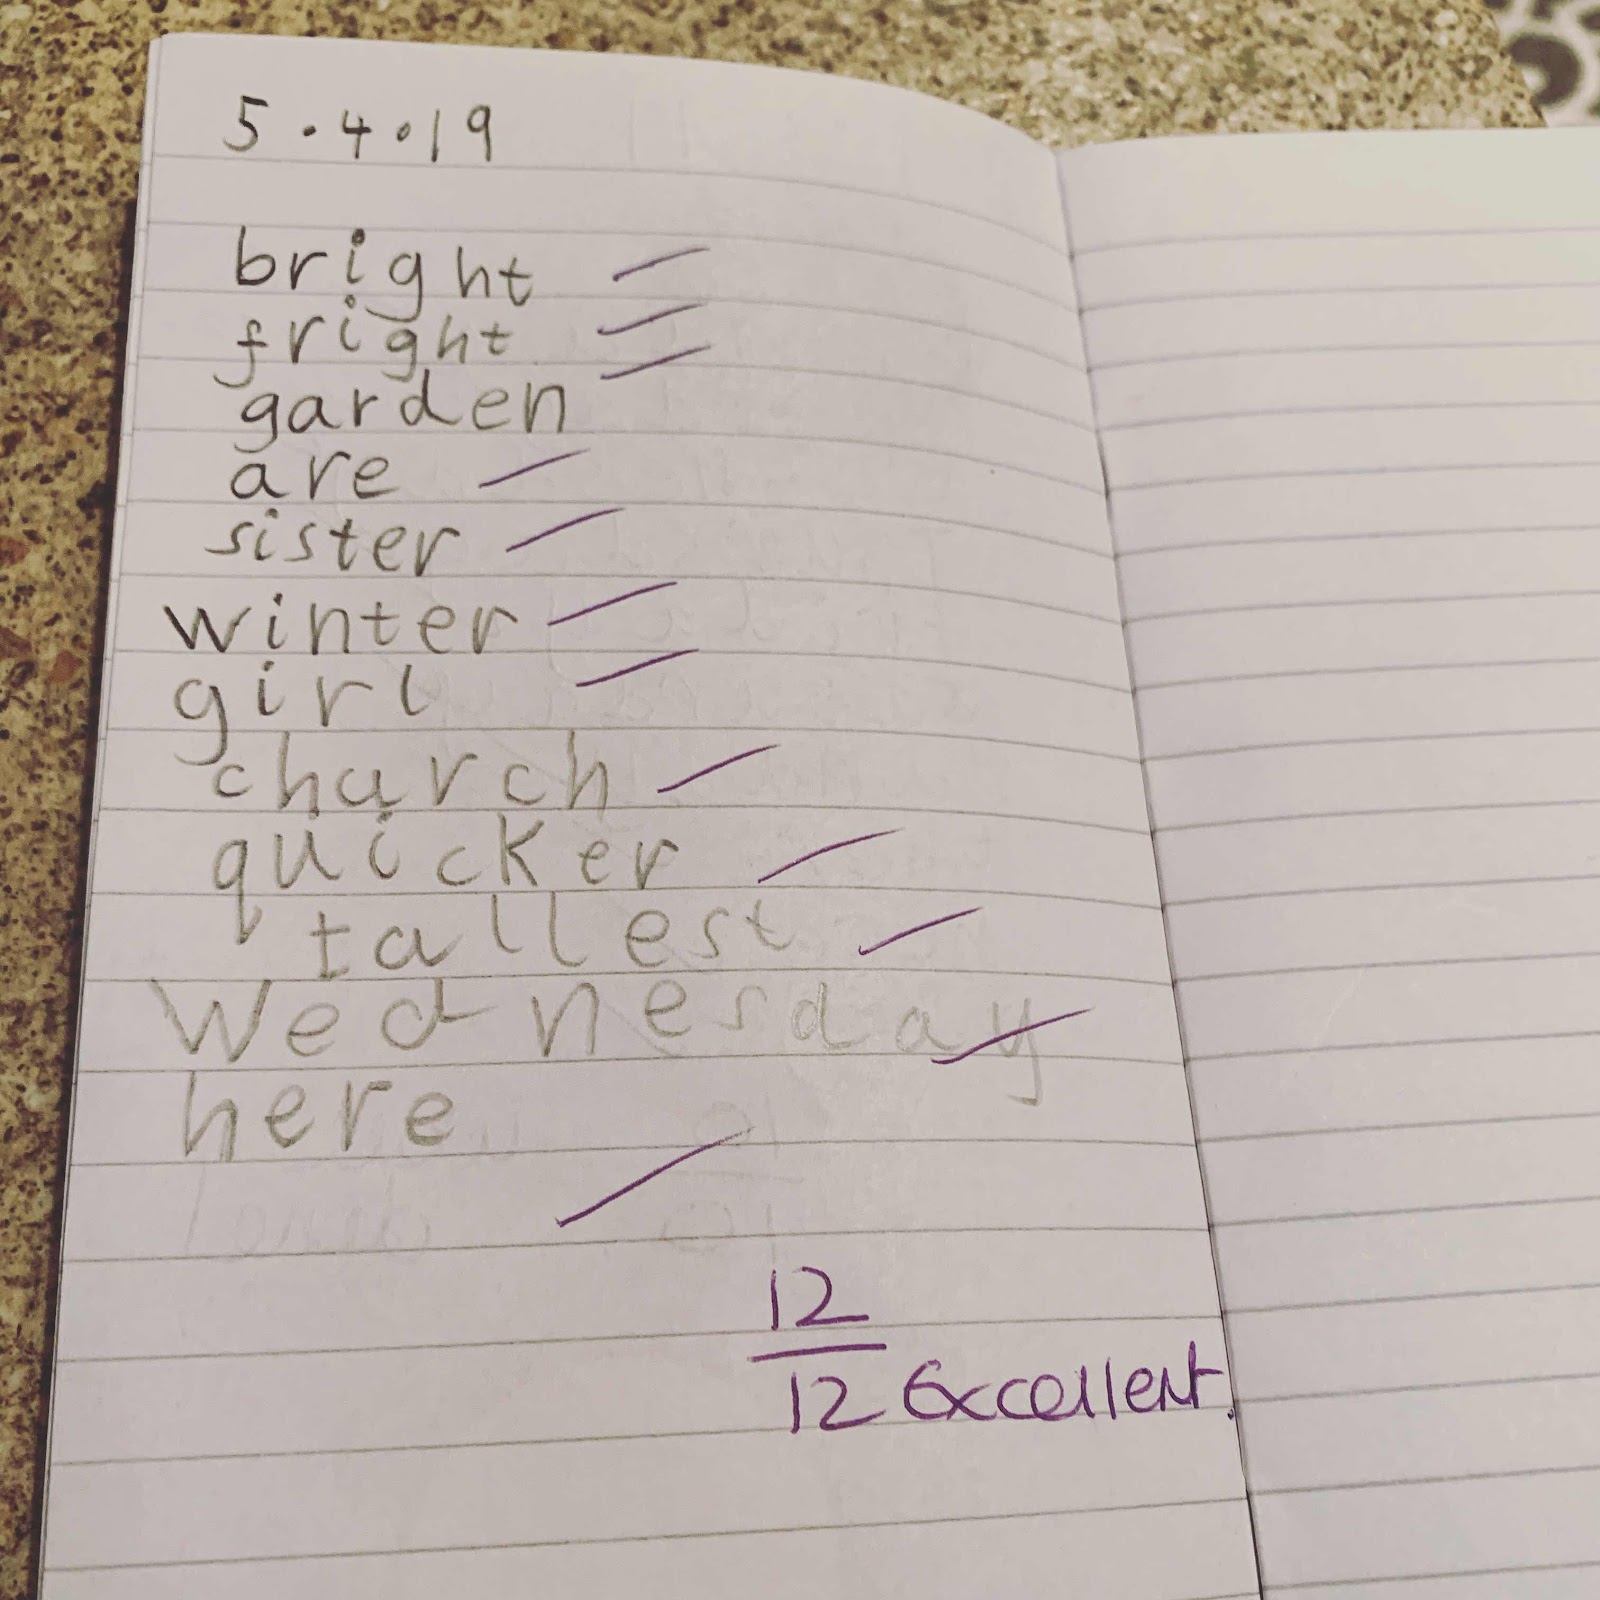 5.4.19
bright
fright
garden
are
sister
winter
girl
church
quicker
tallest
Wednesday
here
12
12 Excellent.